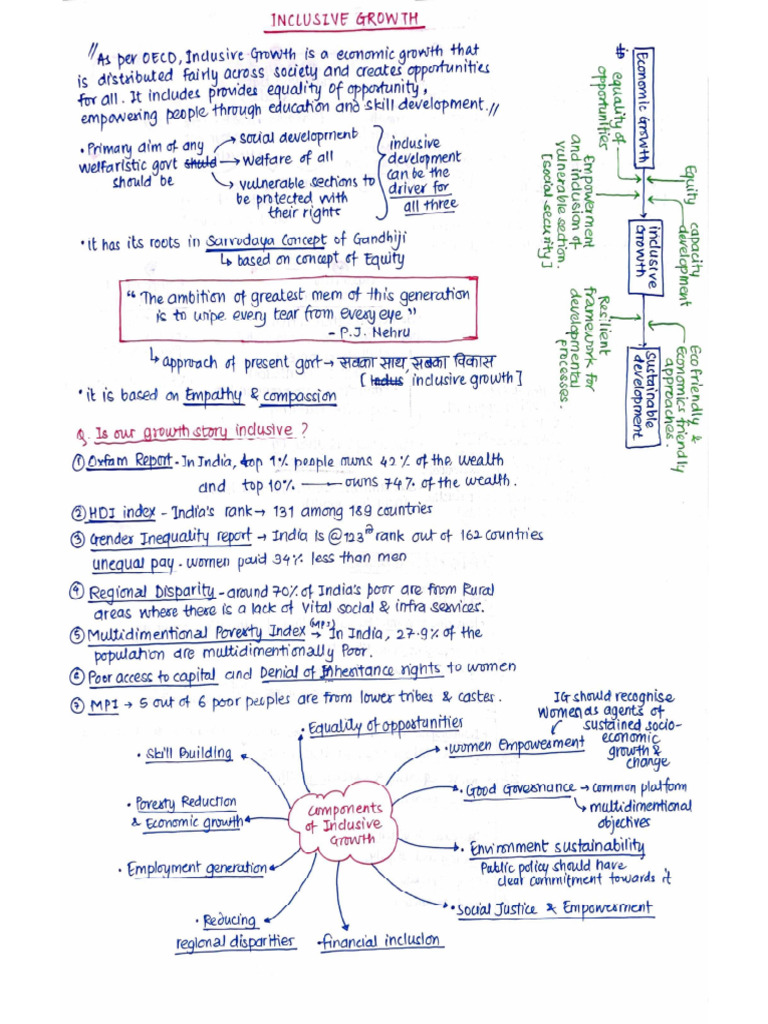 INCLUSIVE GROWTH
"As per OECD, Inclusive Growth is a economic growth that
is distributed fairly across society and creates opportunities
for all. It includes provides equality of opportunity,
empowering people through education and skill development."
• Primary aim of any
welfaristic govt should
should be
→ social development
→ welfare of all
→ vulnerable sections to
be protected with
their rights
inclusive
development
can be the
driver for
all three
• it has its roots in Sarvodaya Concept of Gandhiji
↳ based on concept of Equity
"The ambition of greatest mem of this generation
is to wipe every tear from every eye"
- P.J. Nehru
↳ approach of present govt → सबका साथ, सबका विकास
[ Indus inclusive growth ]
• it is based on Empathy & compassion
Economic Growth
equality of
opportunities
Empowerment
and inclusion of
vulnerable section.
[social security]
Equity
capacity
development
inclusive
Growth
Resilient
framework for
developmental
processes.
Eco friendly &
Economics friendly
approaches.
Sustainable
development
Q. Is our growth story inclusive?
① Oxfam Report - In India, top 1% people owns 42% of the wealth
and top 10% —— owns 74% of the wealth.
② HDI index - India's rank → 131 among 189 countries
③ Gender Inequality report → India is @ 123rd rank out of 162 countries
unequal pay - women paid 34% less than men
④ Regional Disparity - around 70% of India's poor are from Rural
areas where there is a lack of vital social & infra services.
⑤ Multidimentional Poverty Index (MPI) → In India, 27.9% of the
population are multidimentionally Poor.
⑥ Poor access to capital and Denial of Inheritance rights to women
⑦ MPI → 5 out of 6 poor peoples are from lower tribes & castes.
Components
of Inclusive
Growth
• Equality of opportunities
• women Empowerment
IG should recognise
Women as agents of
sustained socio-
economic
growth &
change
• Good Governance → common platform
→ multidimentional
objectives
• Environment sustainability
Public policy should have
clear commitment towards it
• Social Justice & Empowerment
• financial inclusion
• Reducing
regional disparities
• Employment generation
• Poverty Reduction
& Economic growth
• Skill Building